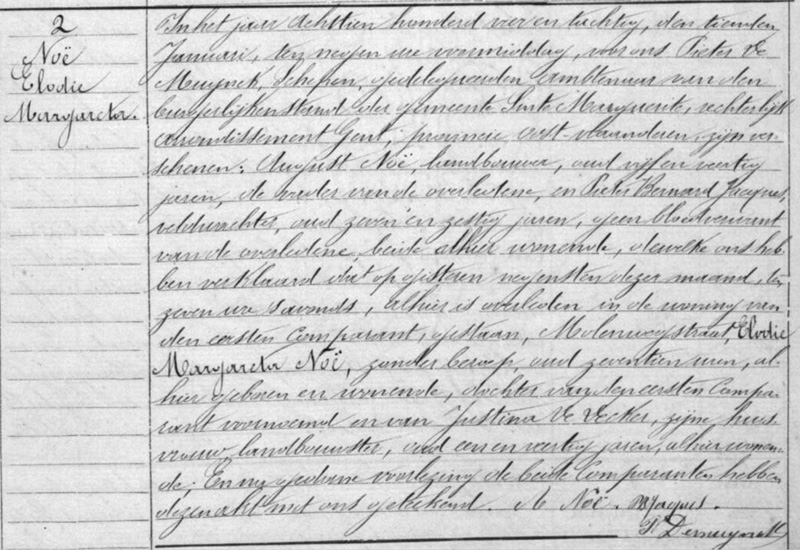 2
Noë
Elodie
Margareta.
In het jaar achttien honderd vier en tachtig, den tienden
Januari, ten negen ure voormiddag, voor ons Pieter De
Muynck, schepen, gedelegueerden ambtenaar van den
burgerlijken stand der gemeente Sinte Margriete, rechterlijk
arrondissement Gent, provincie Oost-vlaanderen, zijn ver-
schenen: August Noë, landbouwer, oud vijf en veertig
jaren, de vader van de overledene, en Pieter Bernard Jacques,
veldwachter, oud zeven en zestig jaren, geen bloedverwant
van de overledene, beide alhier wonende, dewelke ons heb-
ben verklaard dat op gisteren negensten dezer maand, ten
zeven ure s'avonds, alhier is overleden in de woning van
den eersten Comparant, gestaan, Molenwegstraat, Elodie
Margareta Noë, zonder beroep, oud zeventien uren, al-
hier geboren en wonende, dochter van den eersten Compa-
rant voornoemd en van Justina De Decker, zijne huis-
vrouw, landbouwster, oud een en veertig jaren, alhier wonen-
de; En na gedane voorlezing de beide Comparanten hebben
dezen akt met ons geteekend. A Noë. Jacques.
P Demuynck